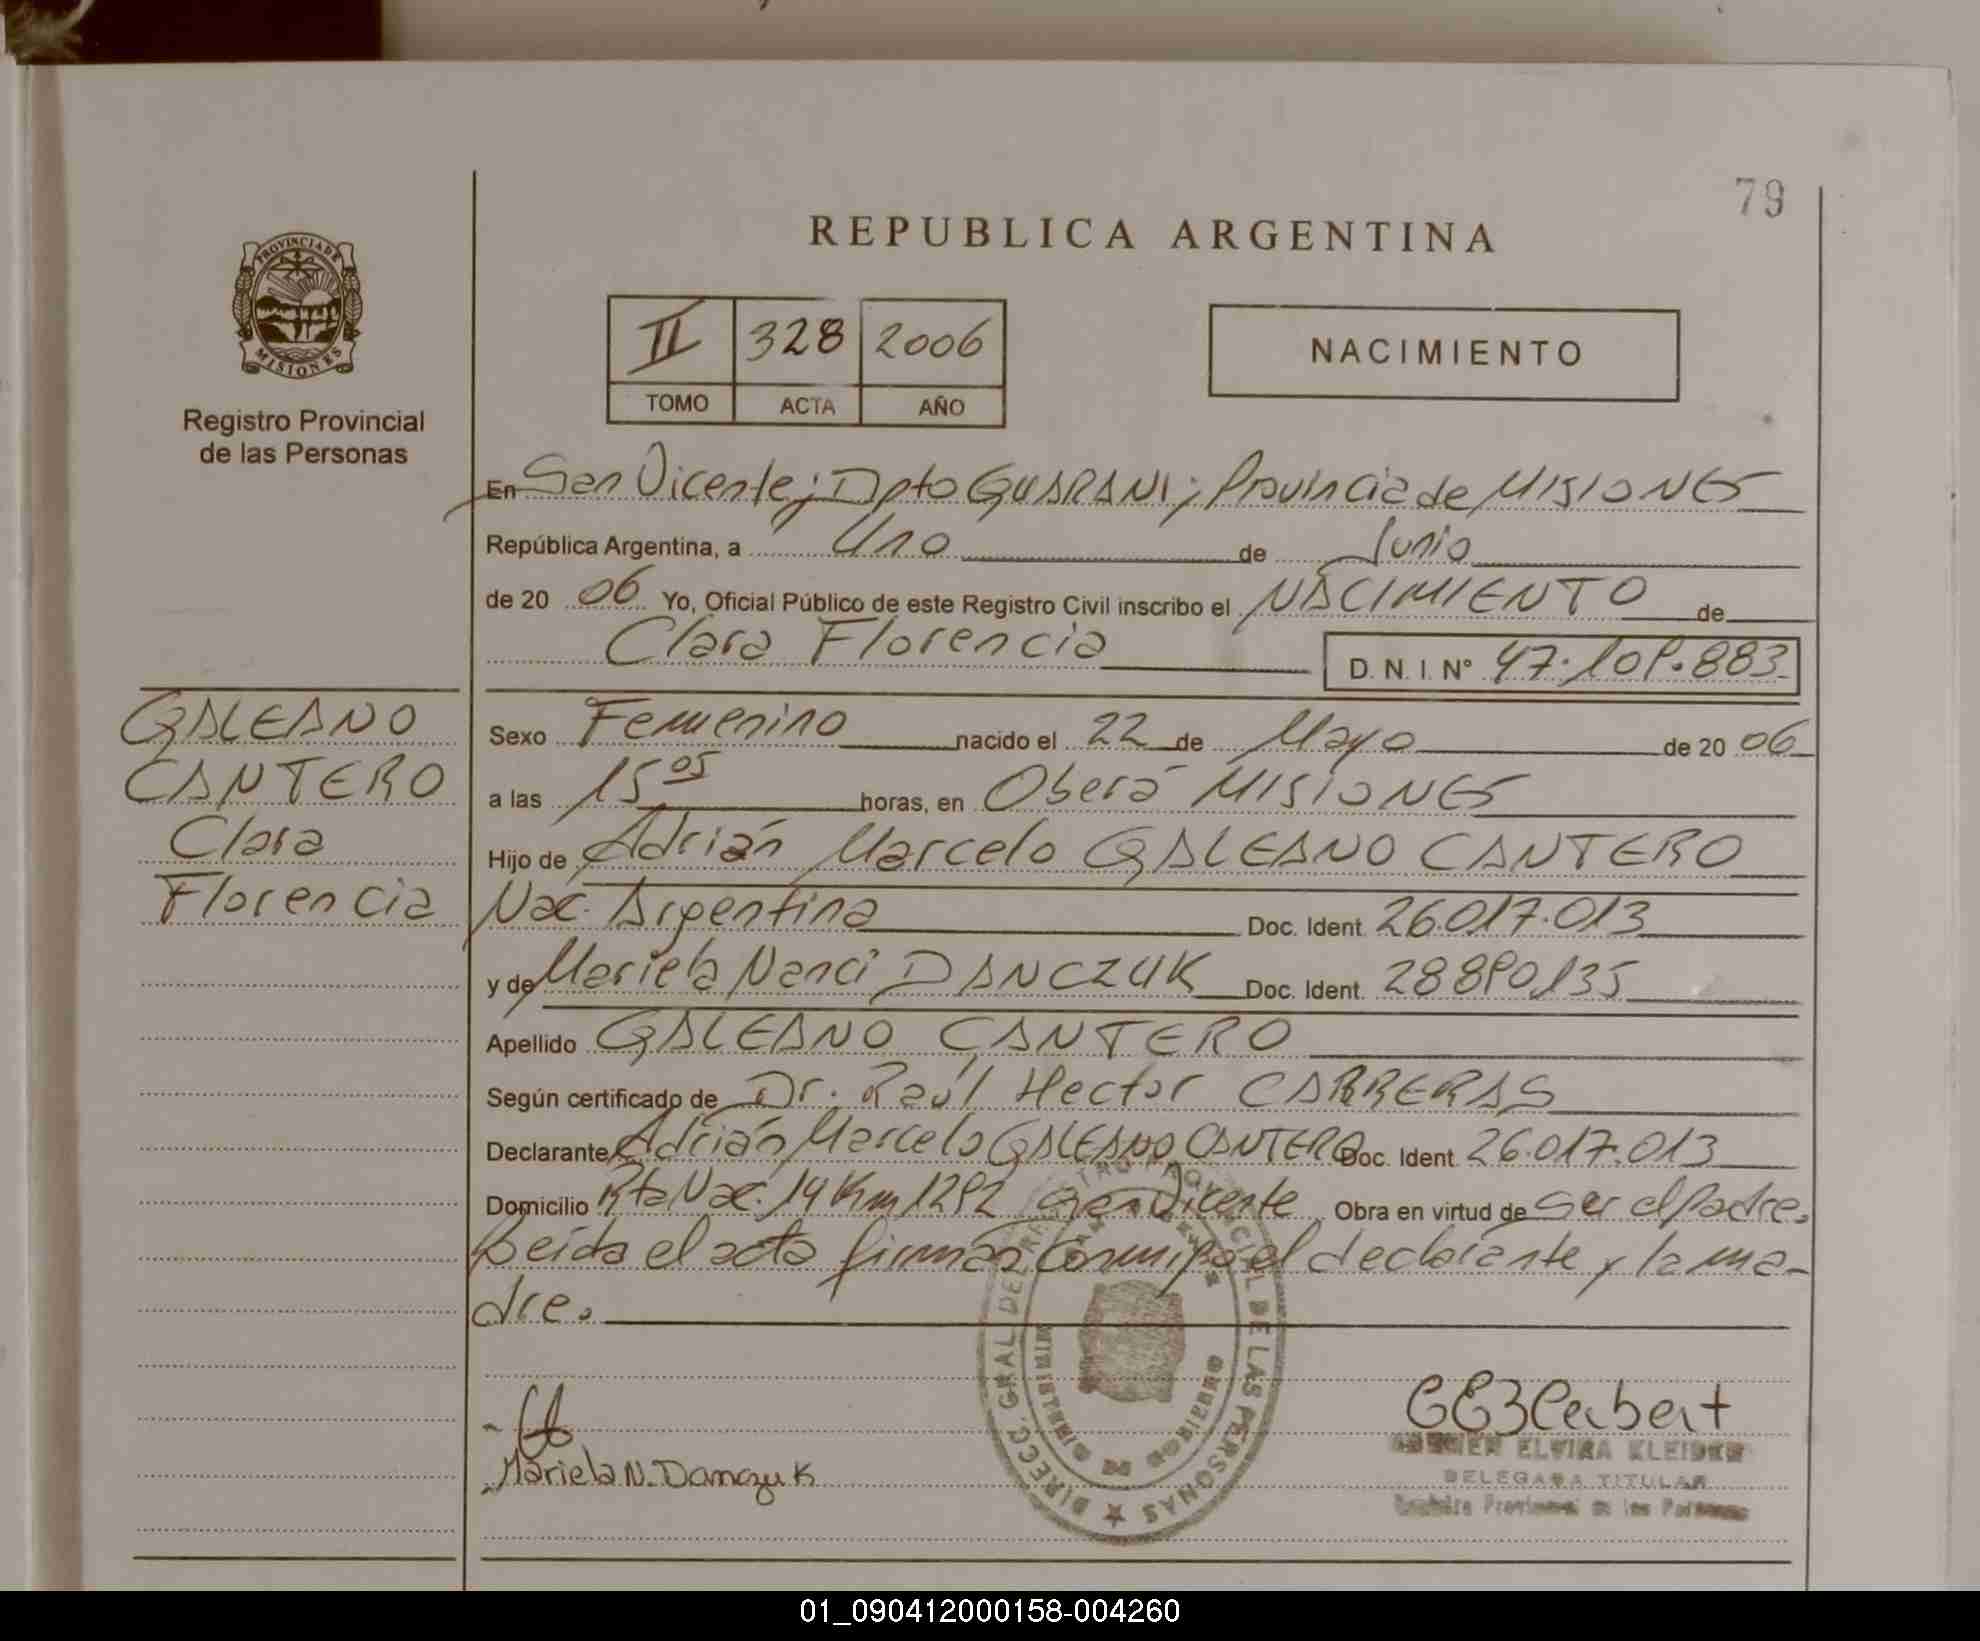 79
REPUBLICA ARGENTINA
PROVINCIA DE
MISIONES
Registro Provincial
de las Personas
II 328 2006
TOMO ACTA AÑO
NACIMIENTO
En San Vicente; Dpto GUARANI; Provincia de MISIONES
República Argentina, a Uno de Junio
de 20 06 Yo, Oficial Público de este Registro Civil inscribo el NACIMIENTO de
Clara Florencia D. N. I. N° 47.109.883
GALEANO
CANTERO
Clara
Florencia
Sexo Femenino nacido el 22 de Mayo de 20 06
a las 15 05 horas, en Oberá MISIONES
Hijo de Adrián Marcelo GALEANO CANTERO
Nac. Argentina Doc. Ident. 26.017.013
y de Mariela Nanci DANCZUK Doc. Ident. 28890135
Apellido GALEANO CANTERO
Según certificado de Dr. Raúl Hector CARRERAS
Declarante Adrián Marcelo GALEANO CANTERO Doc. Ident. 26.017.013
Domicilio Rta Nac. 14 Km 1292 San Vicente Obra en virtud de ser el Padre.
Leída el acta firman conmigo el declarante y la ma-
dre.
Mariela N. Danczuk
DIRECC. GRAL. DEL REGISTRO PROVINCIAL DE LAS PERSONAS
ELVIRA KLEIBER
DELEGADA TITULAR
Registro Provincial de las Personas
01_090412000158-004260